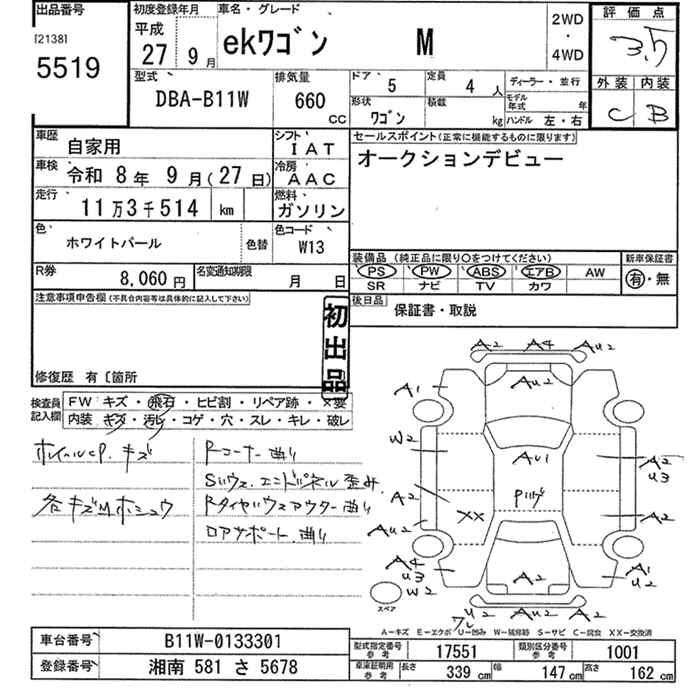 出品番号
[2138]
5519
初度登録年月
平成
27年 9月
車名・グレード
ekワゴン M
2WD
・
4WD
評価点
3.5
外装 内装
C B
型式
DBA-B11W
排気量
660 CC
ドア 5
定員 4人
形状 ワゴン
積載 kg
ディーラー・並行
モデル年式 年
ハンドル 左・右
車歴 自家用
シフト IAT
車検 令和 8年 9月(27日)
冷房 AAC
走行 11万3千514 km
燃料 ガソリン
色 ホワイトパール
色替
色コード W13
R券 8,060円
名変通知期限 月 日
セールスポイント(正常に機能するものに限ります)
オークションデビュー
装備品 (純正品に限り○をつけてください)
PS PW ABS エアB AW
SR ナビ TV カワ
新車保証書
有・無
後日品 保証書・取説
注意事項申告欄(不具合内容等は具体的に記入して下さい)
初出品
修復歴 有〔箇所
検査員記入欄
FW キズ・飛石・ヒビ割・リペア跡・×要
内装 キズ・汚レ・コゲ・穴・スレ・キレ・破レ
ホイールCP. キズ
各キズMホシュウ
Rコーナー曲り
Sハウス.エンドパネル歪み
Rタイヤハウスアウター曲り
ロアサポート.曲り
A2 A4 AU2
AU2
A1
W2
AU1
A2
U3
A2
Pいげ
XX
A2
AU2
A4
U3
W2
A1
U2
A2
U2 AU2 A2
スペア
A-キズ E-エクボ U-凹み W-補修跡 S-サビ C-腐食 XX-交換済
車台番号 B11W-0133301
登録番号 湘南 581 さ 5678
型式指定番号 参考 17551
類別区分番号 参考 1001
車庫証明用 参考
長さ 339 cm
幅 147 cm
高さ 162 cm